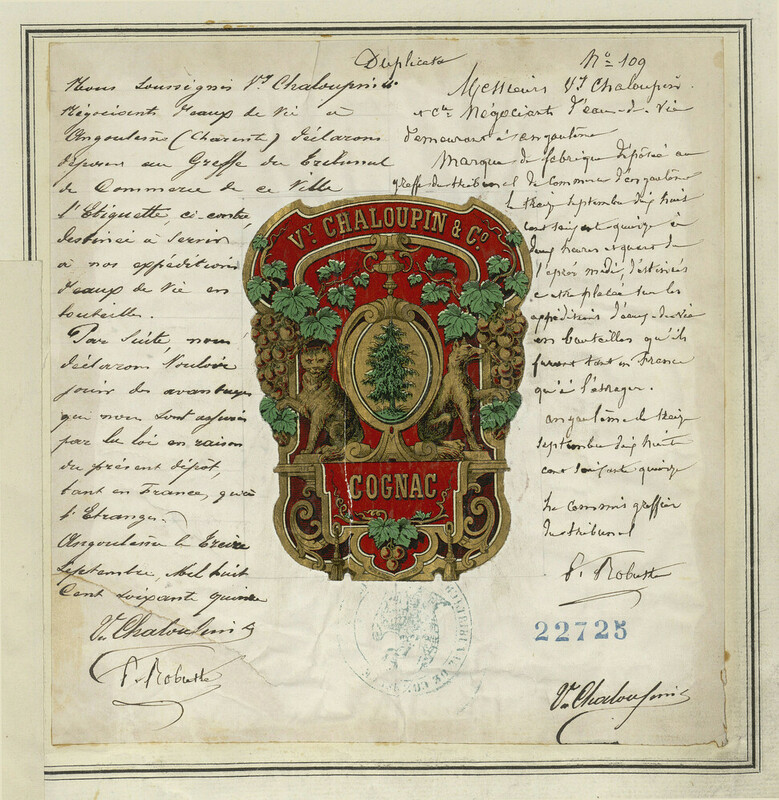 Duplicata
Nous Soussignés Vy Chaloupin & Cie
Négociants d'eaux de Vie à
Angoulême (Charente) déclarons
déposer au Greffe du Tribunal
de Commerce de ce Ville
l'Etiquette, ci contre,
destinée à Servir
à nos expéditions
d'eaux de Vie en
bouteilles.
Par Suite, nous
déclarons Vouloir
jouir des avantages
qui nous sont assurés
par la loi en raison
du présent dépôt,
tant en France, qu'à
l'Etranger.
Angoulême le Treize
Septembre, Mil huit
Cent Soixante quinze
Vy Chaloupin & Cie
P. Robuste
No 109
Messieurs Vy Chaloupin
& Cie Négociants d'eau-de-vie
demeurant à angoulême
Marque de fabrique déposée au
greffe du tribunal de Commerce d'angoulême
le treize Septembre dix huit
cent soixante quinze à
deux heures et quart de
l'après midi, destinée
à être placée sur les
expéditions d'eaux-de-vie
en bouteilles qu'ils
feront tant en France
qu'à l'étranger.
angoulême le treize
septembre dix huit
cent soixante quinze
Le Commis greffier
du tribunal
P. Robuste
22725
Vy Chaloupin & Cie
VY CHALOUPIN & Co
COGNAC